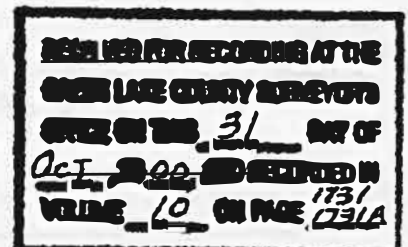 RECEIVED FOR RECORDING AT THE
LAKE COUNTY SURVEYOR'S
OFFICE ON THIS 31 DAY OF
Oct 2000 AND RECORDED IN
VOLUME 10 ON PAGE 1731
1731A